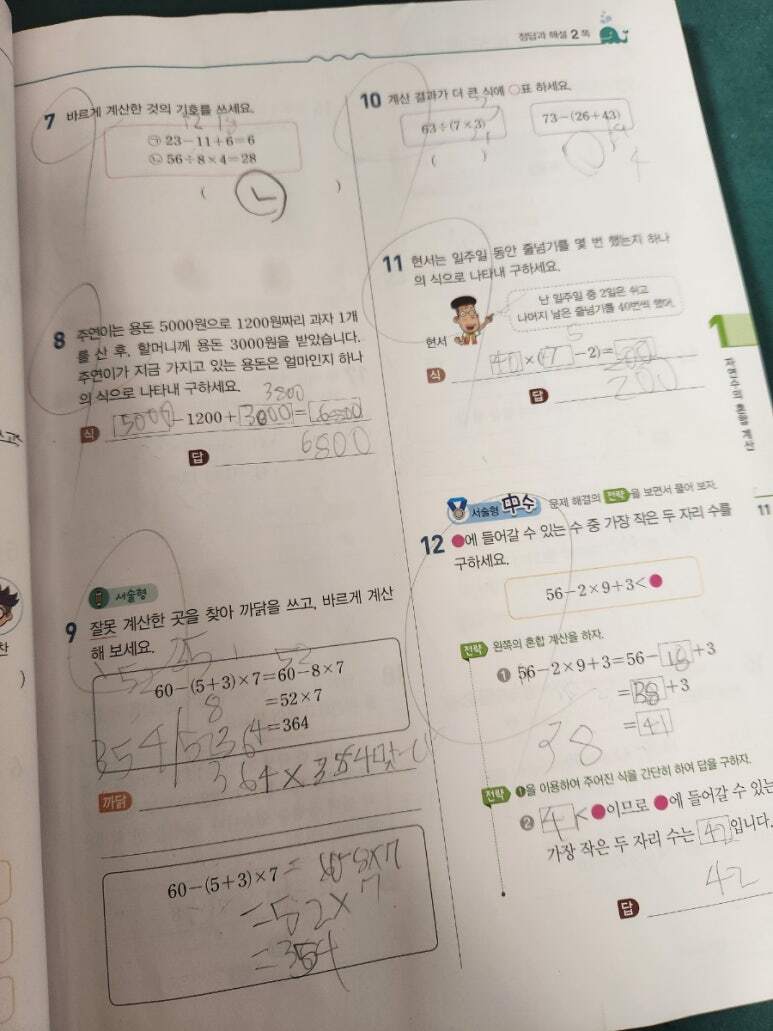 정답과 해설 2쪽
7 바르게 계산한 것의 기호를 쓰세요.
㉠ 23-11+6=6
㉡ 56÷8×4=28
( ㉡ )
8 주연이는 용돈 5000원으로 1200원짜리 과자 1개
를 산 후, 할머니께 용돈 3000원을 받았습니다.
주연이가 지금 가지고 있는 용돈은 얼마인지 하나
의 식으로 나타내 구하세요.
3800
식 5000-1200+3000=6800
답 6800
서술형
9 잘못 계산한 곳을 찾아 까닭을 쓰고, 바르게 계산
해 보세요.
60-(5+3)×7=60-8×7
=52×7
=364
8
364
364×354
까닭
60-(5+3)×7=60-8×7
=52×7
=354
10 계산 결과가 더 큰 식에 ○표 하세요.
63÷(7×3) 73-(26+43)
( )
4
11 현서는 일주일 동안 줄넘기를 몇 번 했는지 하나
의 식으로 나타내 구하세요.
난 일주일 중 2일은 쉬고
나머지 날은 줄넘기를 40번씩 했어.
현서
5
식 40×(7-2)=200
답 200
서술형 中수 문제 해결의 전략을 보면서 풀어 보자.
12 ●에 들어갈 수 있는 수 중 가장 작은 두 자리 수를
구하세요.
56-2×9+3<●
전략 왼쪽의 혼합 계산을 하자.
❶ 56-2×9+3=56-18+3
=38+3
=41
38
전략 ❶을 이용하여 주어진 식을 간단히 하여 답을 구하자.
❷ 4<●이므로 ●에 들어갈 수 있는
가장 작은 두 자리 수는 42입니다.
답 42
1
자연수의 혼합 계산
11